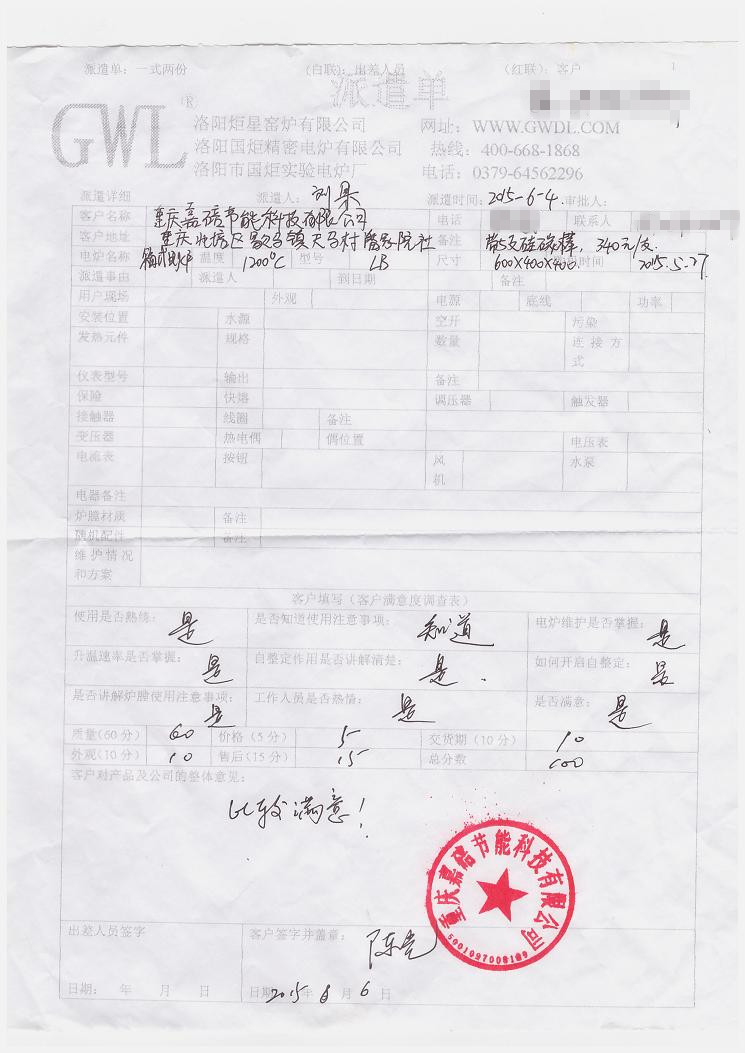 派遣单：一式两份 (白联)：出差人员 (红联)：客户 1
派遣单
GWL®
洛阳炬星窑炉有限公司 网址：WWW.GWDL.COM
洛阳国炬精密电炉有限公司 热线：400-668-1868
洛阳市国炬实验电炉厂 电话：0379-64562296
派遣详细 派遣人： 刘 派遣时间：2015-6-4. 审批人：
客户名称 重庆嘉碚节能科技有限公司 电话 联系人
客户地址 重庆北碚区 马镇天马村 院社 备注 带5支硅碳棒，340元/支.
电炉名称 箱式电炉 温度 1200℃ 型号 LB 尺寸 600×400×400. 时间 2015.5-27
派遣事由 派遣人 到日期 备注
用户现场 外观 电源 底线 功率
安装位置 水源 空开 污染
发热元件 规格 数量 连接方式
仪表型号 输出 备注
保险 快熔 调压器 触发器
接触器 线圈 备注
变压器 热电偶 偶位置 电压表
电流表 按钮 风机 水泵
电器备注
炉膛材质 备注
随机配件 备注
维护情况
和方案
客户填写（客户满意度调查表）
使用是否熟练： 是 是否知道使用注意事项： 知道 电炉维护是否掌握： 是
升温速率是否掌握： 是 自整定作用是否讲解清楚： 是. 如何开启自整定： 是
是否讲解炉膛使用注意事项： 是 工作人员是否热情： 是 是否满意： 是
质量(60分) 60 价格(5分) 5 交货期(10分) 10
外观(10分) 10 售后(15分) 15 总分数 100
客户对产品及公司的整体意见：
比较满意！
重庆嘉碚节能科技有限公司
5001097008189
出差人员签字 客户签字并盖章： 陈亮
日期： 年 月 日 日期：2015年 6月 6日